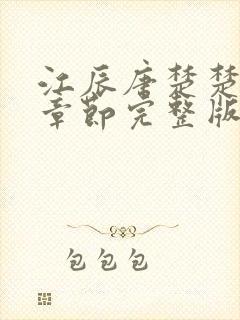 江辰唐楚楚
章节完整版
包包包